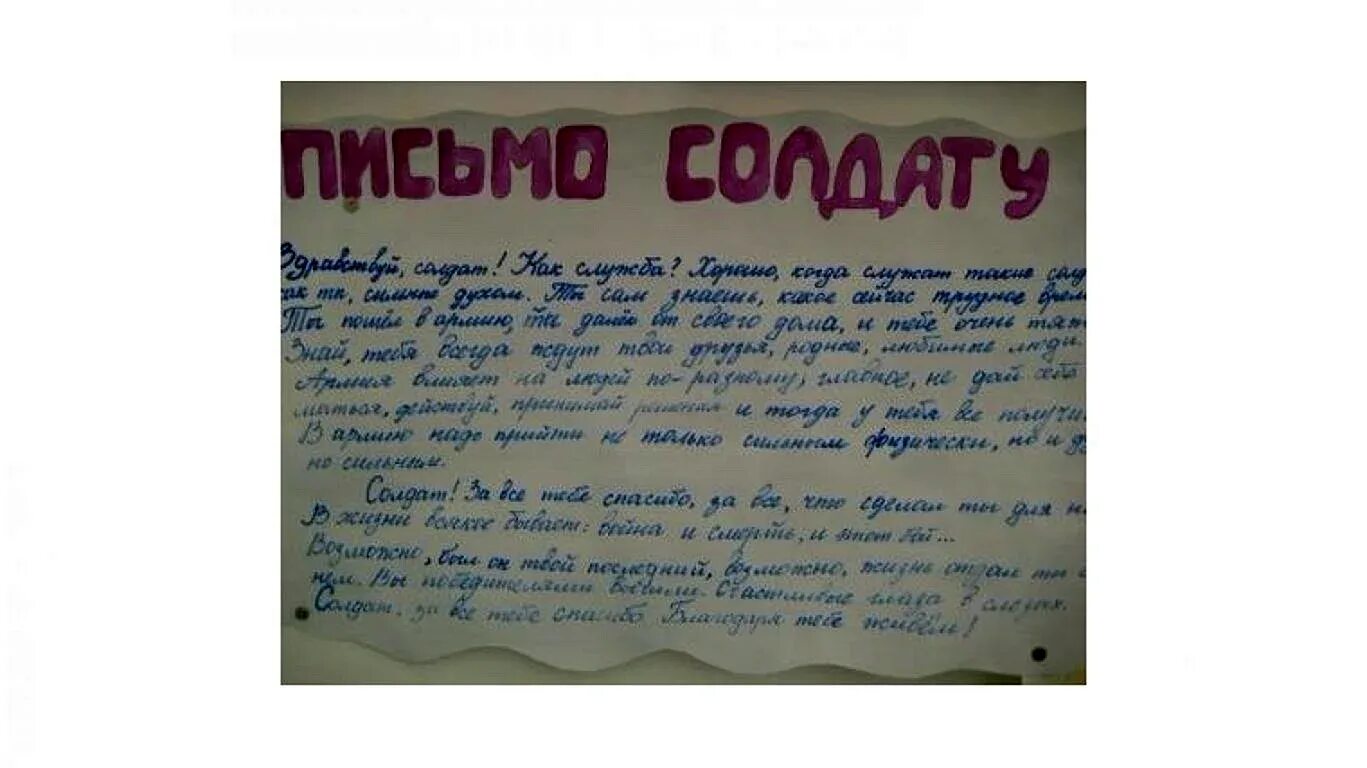 ПИСЬМО СОЛДАТУ
Здравствуй, солдат! Как служба? Хорошо, когда служат такие солд
как ты, сильные духом. Ты сам знаешь, какое сейчас трудное врем
Ты пошёл в армию, ты далек от своего дома, и тебе очень тя
Знай, тебя всегда ждут твои друзья, родные, любимые люди.
Армия влияет на людей по-разному, главное, не дай себе
маться, действуй, принимай решения и тогда у тебя все получи
В армию надо прийти не только сильным физически, но и д
но сильным.
Солдат! За все тебе спасибо, за все, что сделал ты для н
В жизни всякое бывает: война и смерть, и этот бой...
Возможно, был он твой последний, возможно, жизнь отдал ты
нем. Вы победителями Счастливые глаза в слезах.
Солдат, за все тебе спасибо. Благодаря тебе живём!